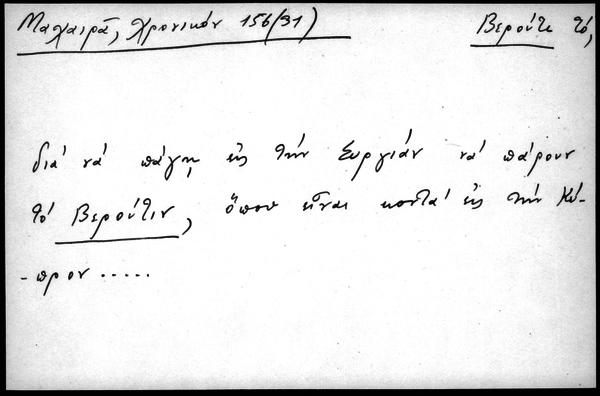 Μαχαιρᾶ, Χρονικόν 156(31) Βερούτε τό,
διά νά πάγῃ εἰς τήν Συργιάν νά πάρουν
τό Βερούτιν, ὅπου εἶναι κοντά εἰς τήν Κύ-
-προν .....